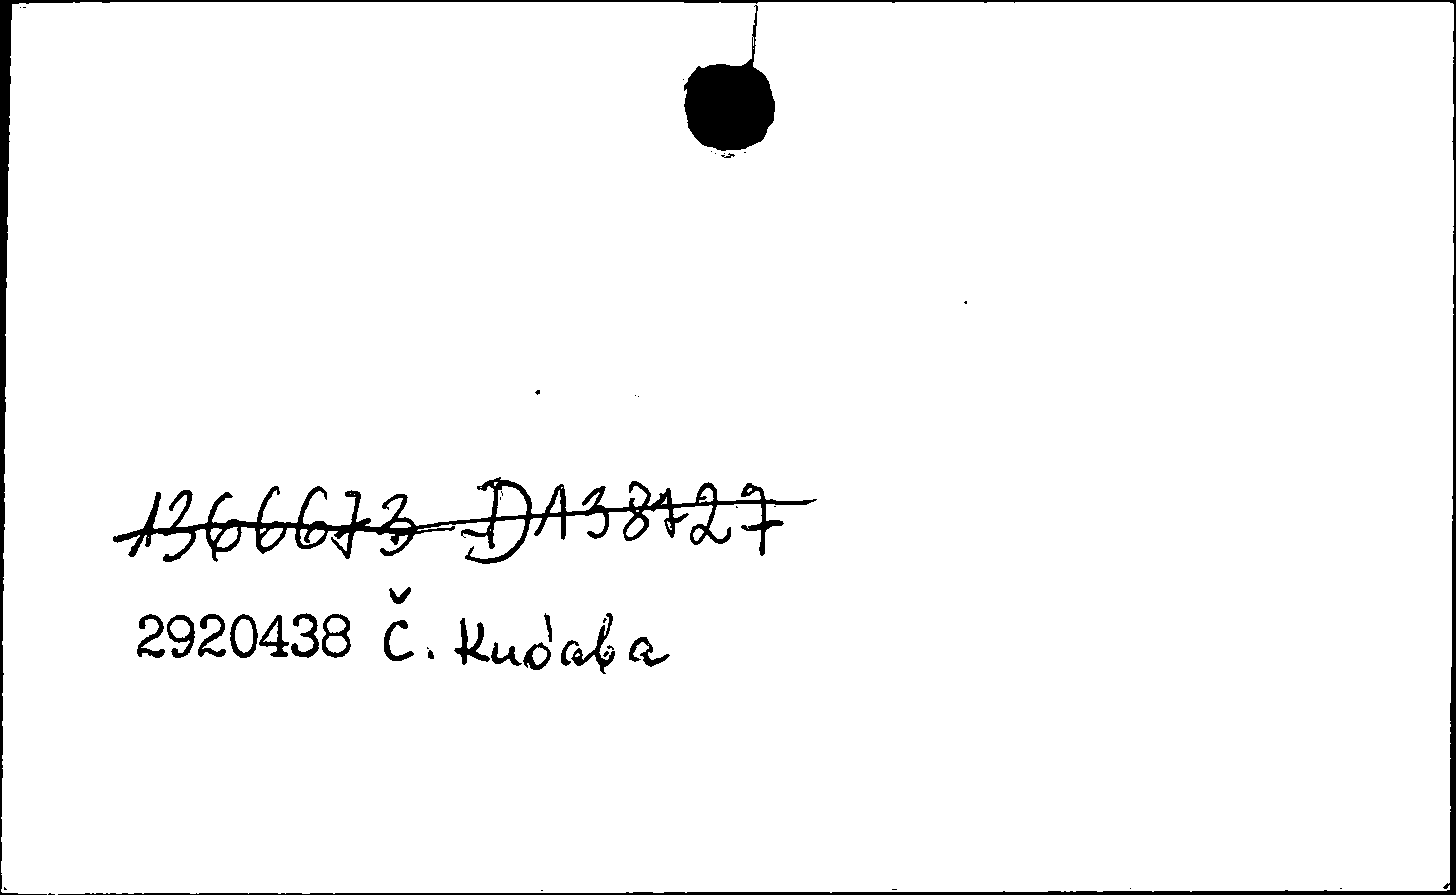 1366673 D138727
2920438 Č. Kudaba